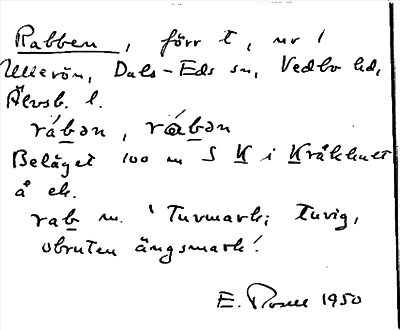 Rabben, förr t, nr 1
Ulerön, Dals-Eds sn, Vedbo hd,
Älvsb. l.
rábən, rábən
Beläget 100 m S K i Kråkhult
å ek.
rab m. 'Tuvmark; tuvig,
obruten ängsmark'.
E. 1950